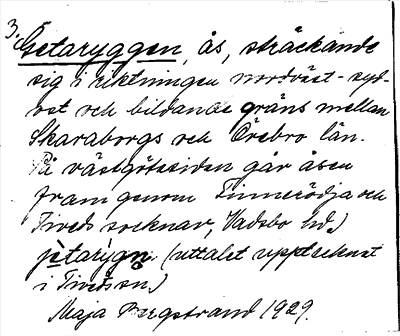 3. Getaryggen, ås, sträckande
sig i riktningen nordväst-syd-
ost och bildande gräns mellan
Skaraborgs och Örebro län.
På västgötasidan går åsen
fram genom Finnerödja och
Tiveds socknar, Vadsbo hd.
jètarýgn̥ (uttalet upptecknat
i Tiveds sn.)
Maja Bergstrand 1929.